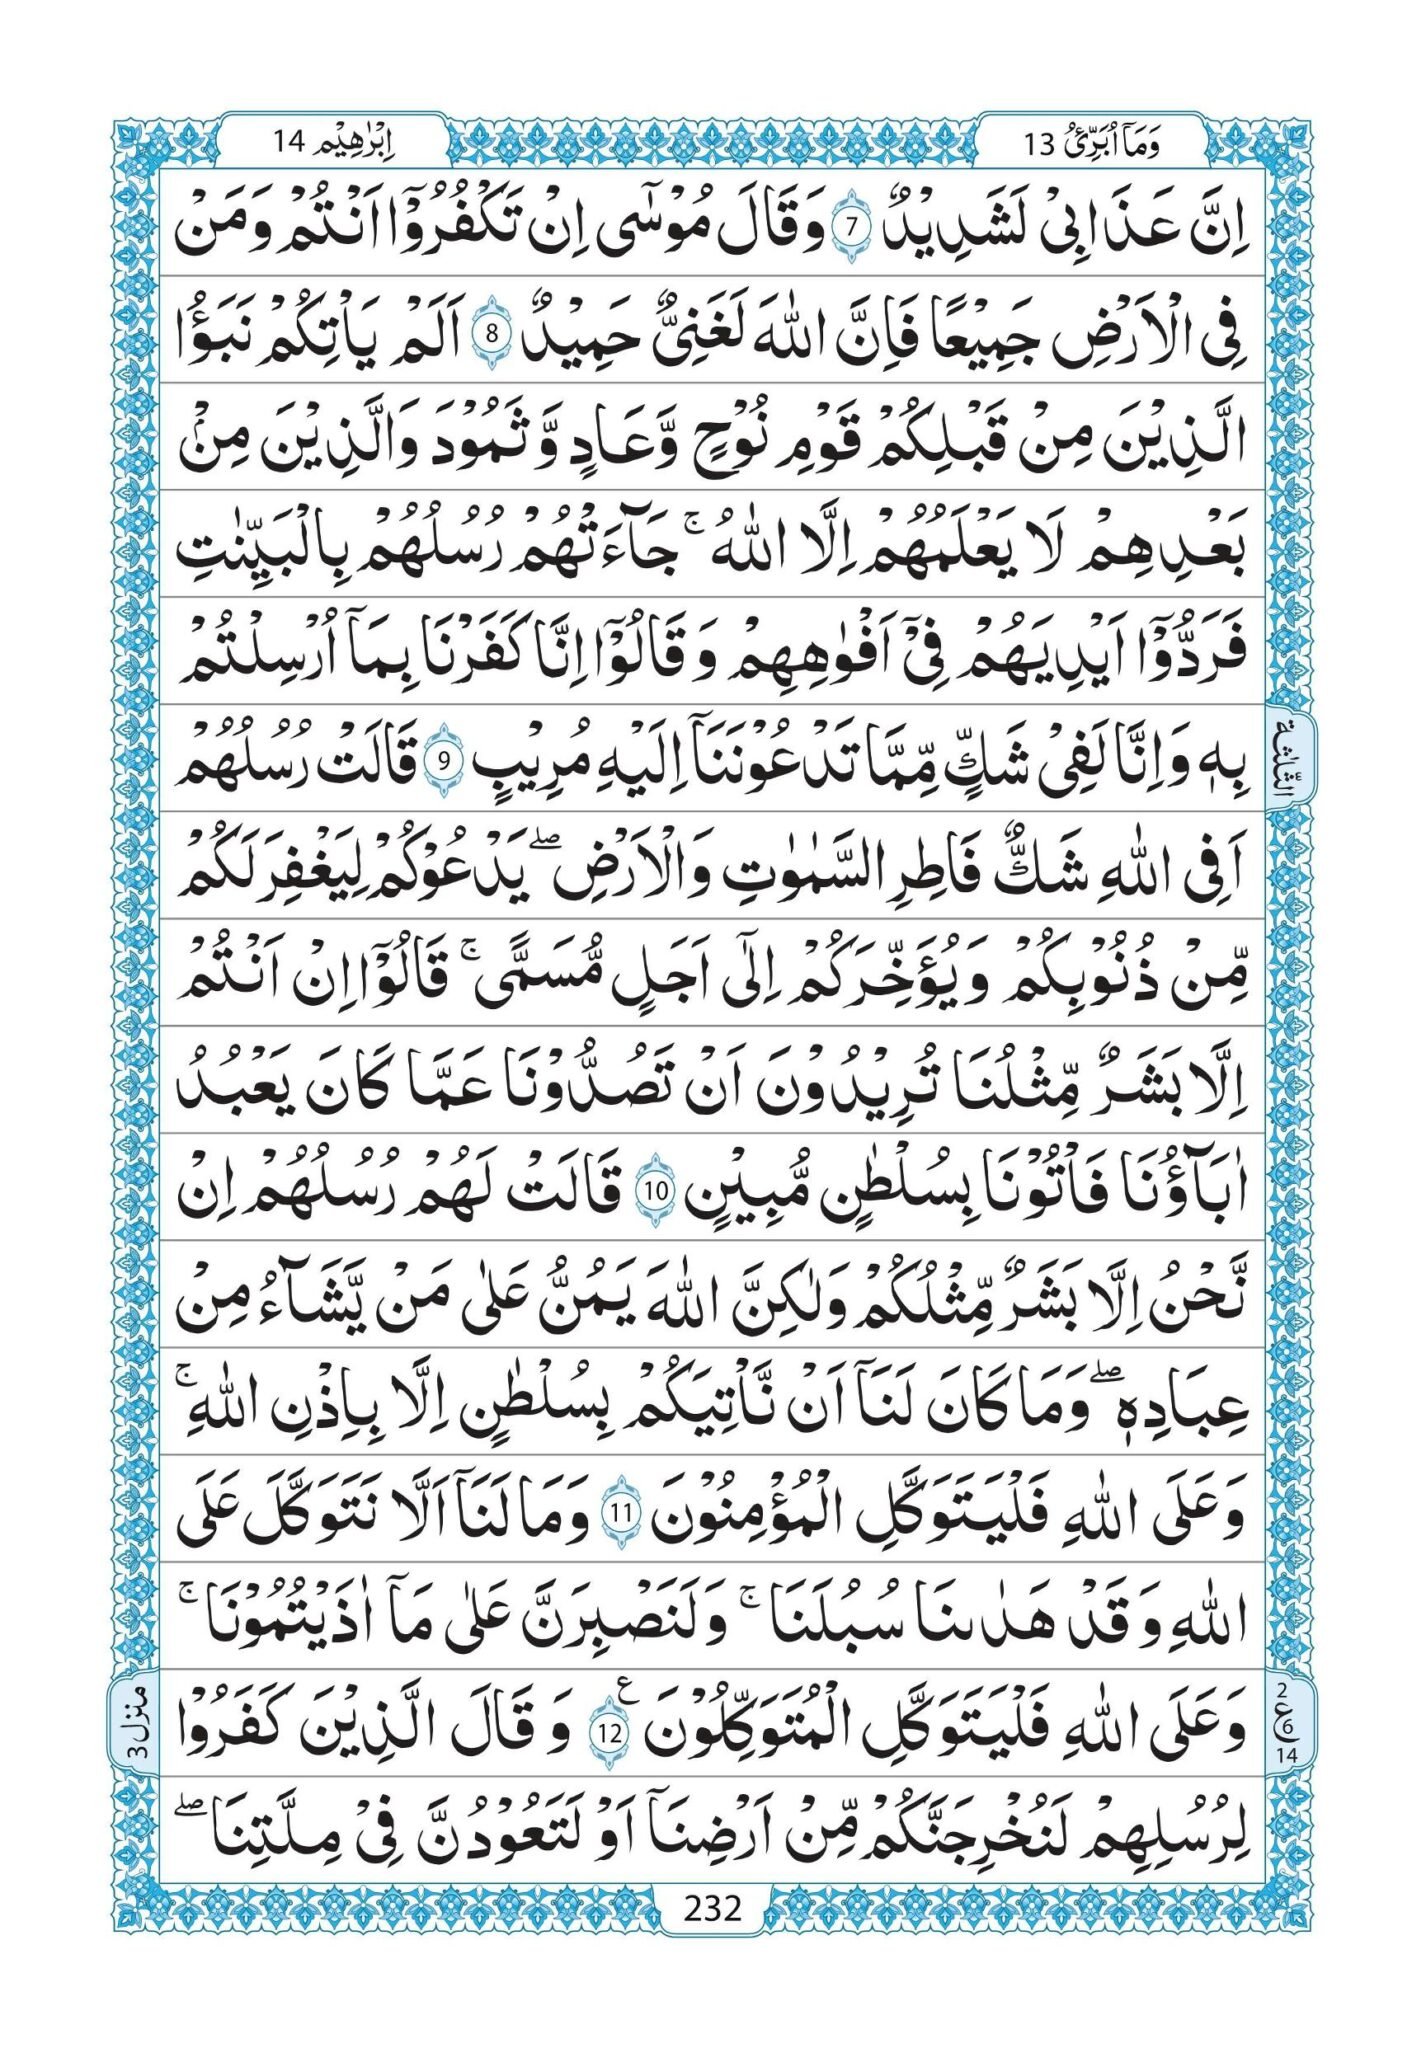 وَمَآ اُبَرِّئُ 13
اِبْرٰهِيْمِ 14
اِنَّ عَذَابِيْ لَشَدِيْدٌ 7 وَقَالَ مُوْسٰٓى اِنْ تَكْفُرُوْٓا اَنْتُمْ وَمَنْ
فِي الْاَرْضِ جَمِيْعًا فَاِنَّ اللّٰهَ لَغَنِيٌّ حَمِيْدٌ 8 اَلَمْ يَاْتِكُمْ نَبَؤُا
الَّذِيْنَ مِنْ قَبْلِكُمْ قَوْمِ نُوْحٍ وَّعَادٍ وَّثَمُوْدَ وَالَّذِيْنَ مِنْۢ
بَعْدِهِمْ لَا يَعْلَمُهُمْ اِلَّا اللّٰهُ ۚ جَآءَتْهُمْ رُسُلُهُمْ بِالْبَيِّنٰتِ
فَرَدُّوْٓا اَيْدِيَهُمْ فِيْٓ اَفْوٰهِهِمْ وَقَالُوْٓا اِنَّا كَفَرْنَا بِمَآ اُرْسِلْتُمْ
بِهٖ وَاِنَّا لَفِيْ شَكٍّ مِّمَّا تَدْعُوْنَنَآ اِلَيْهِ مُرِيْبٍ 9 قَالَتْ رُسُلُهُمْ
الثلٰثة
اَفِي اللّٰهِ شَكٌّ فَاطِرِ السَّمٰوٰتِ وَالْاَرْضِ ۖ يَدْعُوْكُمْ لِيَغْفِرَ لَكُمْ
مِّنْ ذُنُوْبِكُمْ وَيُؤَخِّرَكُمْ اِلٰٓى اَجَلٍ مُّسَمًّى ۚ قَالُوْٓا اِنْ اَنْتُمْ
اِلَّا بَشَرٌ مِّثْلُنَا تُرِيْدُوْنَ اَنْ تَصُدُّوْنَا عَمَّا كَانَ يَعْبُدُ
اٰبَآؤُنَا فَاْتُوْنَا بِسُلْطٰنٍ مُّبِيْنٍ 10 قَالَتْ لَهُمْ رُسُلُهُمْ اِنْ
نَّحْنُ اِلَّا بَشَرٌ مِّثْلُكُمْ وَلٰكِنَّ اللّٰهَ يَمُنُّ عَلٰى مَنْ يَّشَآءُ مِنْ
عِبَادِهٖ ۖ وَمَا كَانَ لَنَآ اَنْ نَّاْتِيَكُمْ بِسُلْطٰنٍ اِلَّا بِاِذْنِ اللّٰهِ ۚ
وَعَلَى اللّٰهِ فَلْيَتَوَكَّلِ الْمُؤْمِنُوْنَ 11 وَمَا لَنَآ اَلَّا نَتَوَكَّلَ عَلَى
اللّٰهِ وَقَدْ هَدٰىنَا سُبُلَنَا ۚ وَلَنَصْبِرَنَّ عَلٰى مَآ اٰذَيْتُمُوْنَا ۚ
وَعَلَى اللّٰهِ فَلْيَتَوَكَّلِ الْمُتَوَكِّلُوْنَ ع 12 وَقَالَ الَّذِيْنَ كَفَرُوْا
2
ع 6
14
منزل 3
لِرُسُلِهِمْ لَنُخْرِجَنَّكُمْ مِّنْ اَرْضِنَآ اَوْ لَتَعُوْدُنَّ فِيْ مِلَّتِنَا ۖ
232